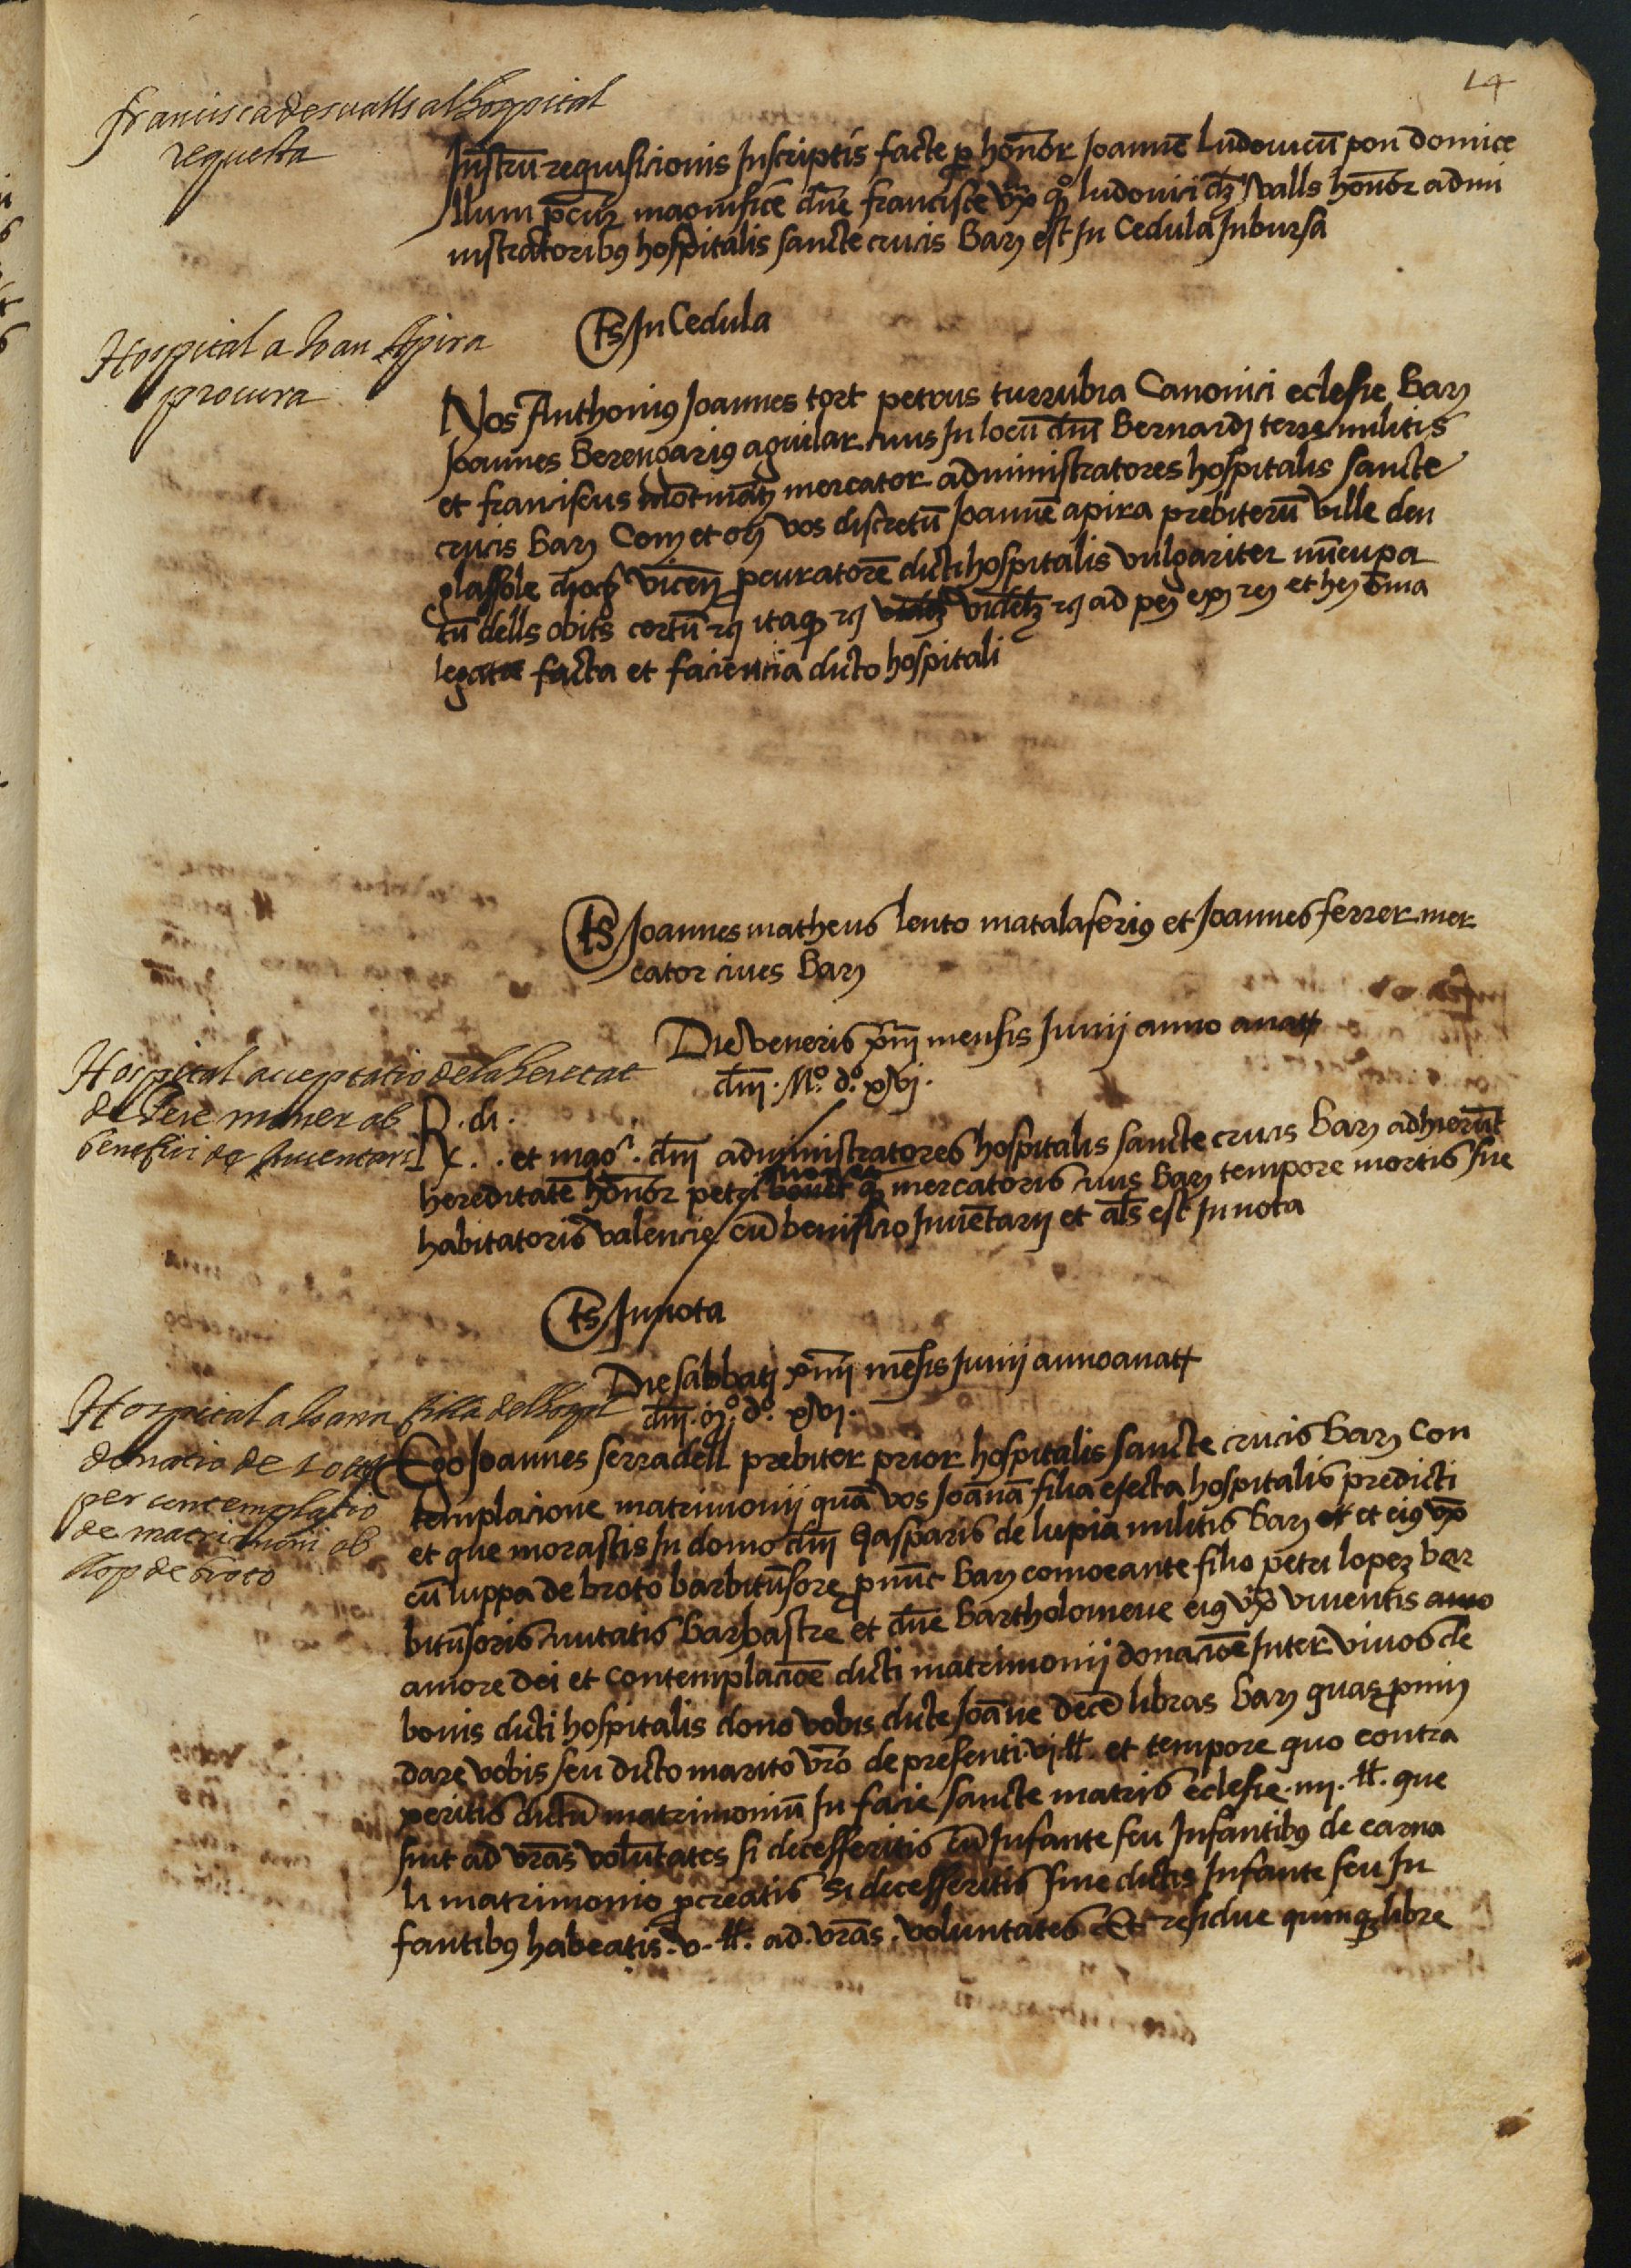 14
francisca desualls al hospital
requesta
Instrū requisicionis Inscriptis facte p honor Joannē Ludouicū pon domice
llum pcur magnifice dne francisce vx qo ludovici dz valls honor admi
nistratorib9 hospitalis sancte crucis Barn est In Cedula Inbursa
Ts In Cedula
Hospital a Joan Apira
procura
Nos Anthoni9 Joannes tort petrus turrubia Canonici eclesie Barn
Joannes Berengari9 aguilar ciuis In locū dni Bernardi terre militis
et franciscus mercator administratores hospitalis sancte
crucis Barn vos discretū Joannē apira prebiterū ville den
glassole vicen pcuratorē dicti hospitalis vulgariter nūcupa
tū dells obits certū itaq ad et oma
legata facta et faciencia dicto hospitali
Ts Joannes matheus lento matalaferi9 et Joannes ferrer mer
cator ciues Barn
Die veneris xiii mensis Junij anno a nat
dni Mº dº xvi.
Hospital acceptatio dela heretat
de Pere moner ab
benefici de Inuentari
R. di.
et mag. dni administratores hospitalis sancte crucis Barn adhierūt
moner
hereditatē honor petri bonet q mercatoris ciuis Barn tempore mortis sue
habitatoris valencie cū benificio Inuētarij et als est In nota
Ts In nota
Die sabbati xiiii mēsis Junij anno a nat
dni Mº dº xvi.
Hospital a Joana filla del hospital
donatio de 10 ll
per contemplatio
de matrimoni ab
llop de broto
Ego Joannes serradell prebiter prior hospitalis sancte crucis Barn con
templacione matrimonij quā vos Joānā filia efecta hospitalis predicti
et que morastis In domo dni Gasparis de lupia militis Barn et eig vx
cū luppa de broto barbitūsore p nūc Barn comorante filio petri lopez bar
bitūsoris ciuitatis Barbastre et dne Bartholomeue eig vx viuentis
amore dei et contemplacioē dicti matrimonij donacioē Inter viuos de
bonis dicti hospitalis dono vobis dicte Joāne decē libras Barn quas pmi
dare vobis seu dicto marito vro de presenti vi ll. et tempore quo contra
peritis dictū matrimoniū In facie sancte matris eclesie iiii ll. que
sint ad vras volūtates si decesseritis cū Infante seu Infantib9 de carna
li matrimonio pcreatis Si decesseritis sine dictis Infante seu In
fantib9 habeatis v ll. ad vras voluntates Et residue quinq libre